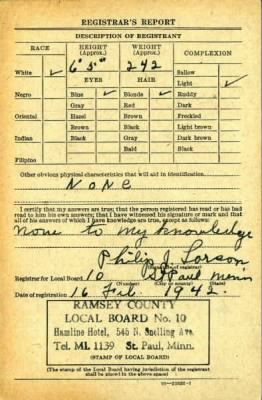 REGISTRAR'S REPORT
DESCRIPTION OF REGISTRANT
RACE HEIGHT (Approx.) WEIGHT (Approx.) COMPLEXION
White ✓ 6' 5" 242 Sallow
EYES HAIR Light ✓
Negro Blue ✓ Blonde ✓ Ruddy
Gray Red Dark
Oriental Hazel Brown Freckled
Brown Black Light brown
Indian Black Gray Dark brown
Bald Black
Filipino
Other obvious physical characteristics that will aid in identification
None
I certify that my answers are true; that the person registered has read or has had
read to him his own answers; that I have witnessed his signature or mark and that
all of his answers of which I have knowledge are true, except as follows:
None to my knowledge
Philip J. Lorson
(Signature of registrar)
Registrar for Local Board 10 St Paul Minn
(Number) (City or county) (State)
Date of registration 16 Feb. 1942.
RAMSEY COUNTY
LOCAL BOARD No. 10
Hamline Hotel, 545 N. Snelling Ave.
Tel. MI. 1139 St. Paul, Minn.
(STAMP OF LOCAL BOARD)
(The stamp of the Local Board having jurisdiction of the registrant
shall be placed in the above space)